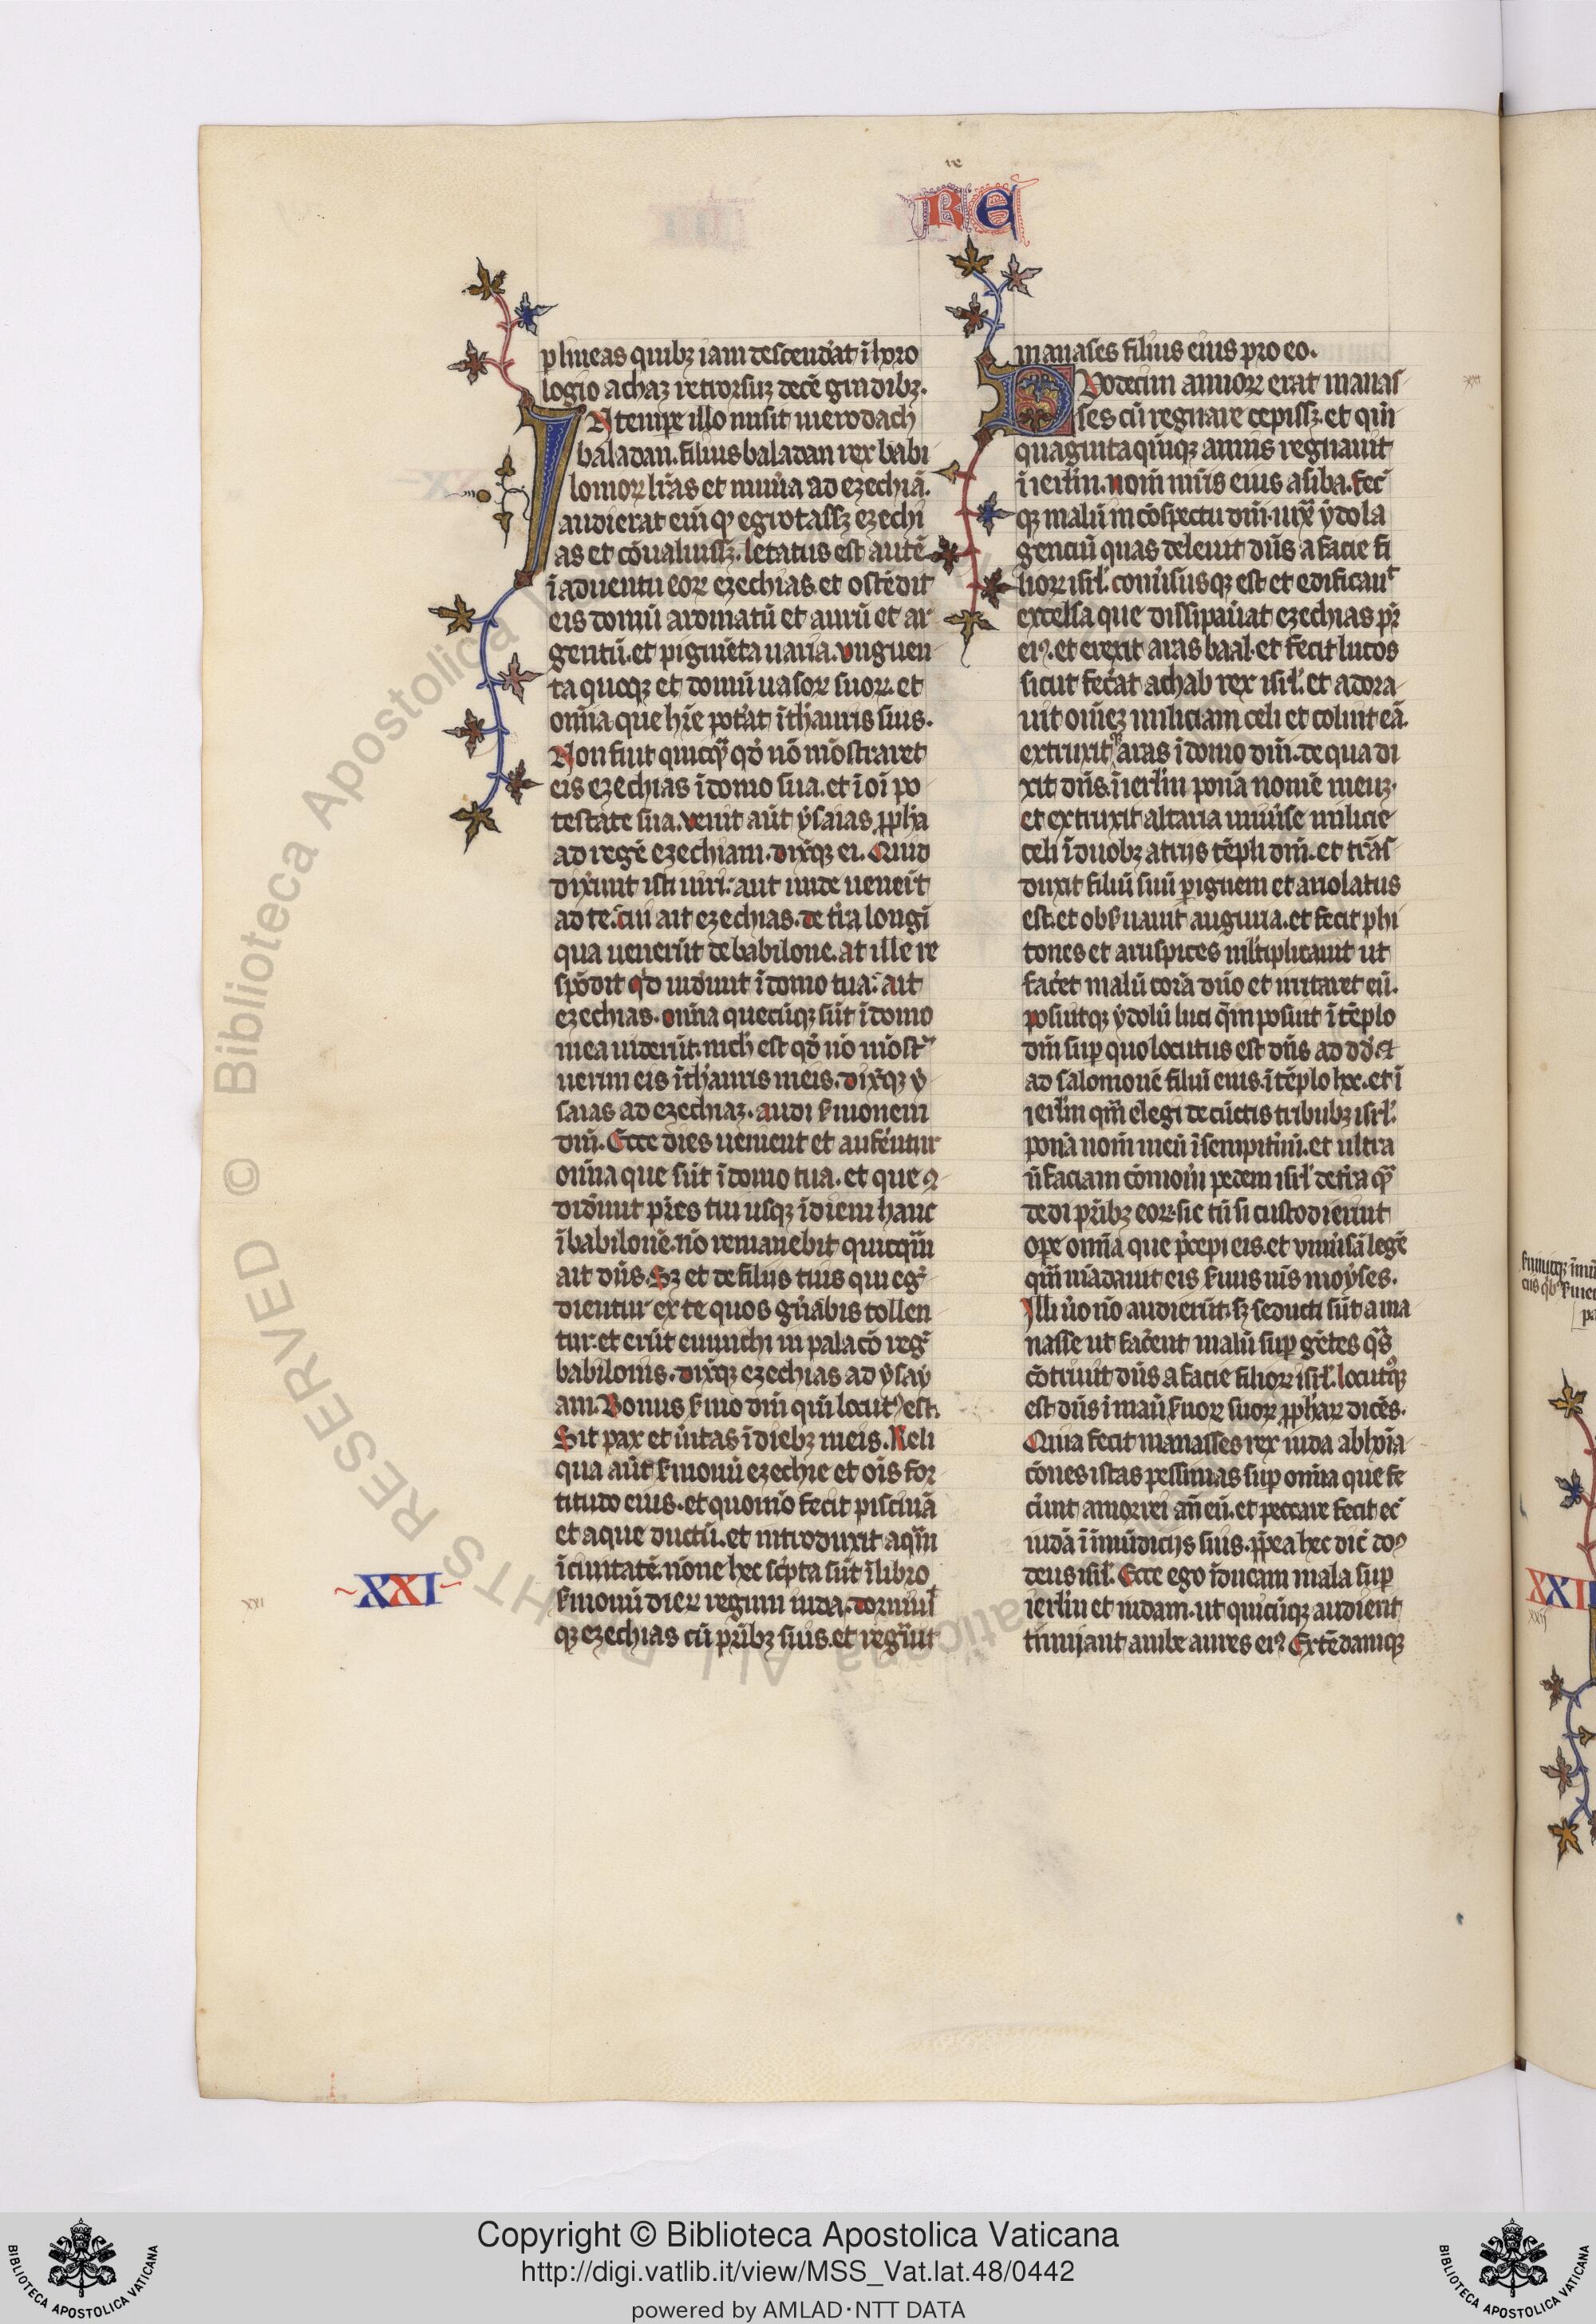 re
RE
p lineas quibꝫ iam descendˀat ĩ horo
logio achaz retrorsuꝫ decẽ gradibꝫ.
IN tempe illo misit merodach
baladan. filius baladan rex babi
lonioꝝ lr̃as et mun̾a ad ezechiã.
audierat eni̾ ꝙ egrotassꝫ ezechi
as et cõualuissꝫ. letatus est autẽ
ĩ aduentu eoꝝ ezechias. et ostẽdit
eis domũ aromatũ et aurũ et ar
gentũ. et pigmẽta uaria. vnguen
ta quoqꝫ et domũ uasoꝝ suoꝝ. et
om̃ia que hr̃e pot̾at ĩ th̾auris suis.
Non fuit quicq̃ꝫ qđ nõ mõstraret
eis ezechias ĩ domo sua. et ĩ oĩ po
testate sua. venit aũt ysaias ꝓph̃a
ad regẽ ezechiam. dix̾qꝫ ei. Quid
dix̾unt isti uiri: aut unde uener̃t
ad te. cui ait ezechias. de tr̃a longĩ
qua uenerũt de babilone. at ille re
spõdit qͥd uider̾unt ĩ domo tua: ait
ezechias. om̃ia quecũqꝫ sũt ĩ domo
mea uiderũt. nich̾ est qđ nõ mõstͣ
uerim eis ĩ th̾auris meis. dix̾qꝫ y
saias ad ezechiaꝫ. audi ẜmonem
dn̾i. Ecce dies uenient et aufer̾ntur
om̃ia que sũt ĩ domo tua. et que ꝯ
didr̾unt pr̃es tui usqꝫ ĩ diem hanc
ĩ babilonẽ. nõ remanebit quicqͣm
ait dñs. Sꝫ et de filiis tuis qui egͬ
dientur ex te quos gn̾abis tollen
tur. et erũt eunuchi in palacõ regͥ
babilonis. dix̾qꝫ ezechias ad ysay
am. Bonus ẜmo dn̾i quẽ locutꝰ est.
Sit pax et ũitas ĩ diebꝫ meis. Reli
qua aũt ẜmonũ ezechie et ois̃ for
titudo eius. et quom̊ fecit piscinã
et aque ductũ. et introduxit aqͣm
ĩ ciuitatẽ. nõne hec sc̾pta sũt ĩ libro
ẜmonũ dieꝝ regum iuda. dormiuͭ
qꝫ ezechias cũ pr̃ibꝫ suis. et regͣuit
XXI
xxi
manases filius eius pro eo.
DVodecim annoꝝ erat manas
ses cũ regnare cepissꝫ. et qui̾n
quaginta quinqꝫ annis regnauit
ĩ ierl̾m. nom̃ mr̃is eius asiba. fecͭ
qꝫ malũ in cõspectu dn̾i. iuxͣ ydola
genciũ quas deleuit dñs a facie fi
lioꝝ isrl̾. conu̾susqꝫ est et edificauͭ
excelsa que dissipau̾at ezechias pr̃
eiꝰ. et erexit aras baal. et fecit lucos
sicut fec̾at achab rex isrl̾. et adora
uit om̃eꝫ miliciam celi et coluit eã.
extruxitqꝫ aras ĩ domo dn̾i. de qua di
xit dñs. ĩ ierl̾m ponã nomẽ meuꝫ.
et extruxit altaria uniu̾se milicie
celi ĩ duobꝫ atriis tẽpli dn̾i. et trãs
duxit filiũ suũ ꝑ ignem et ariolatus
est. et obẜuauit auguria. et fecit phi
tones et aruspices ml̾tiplicauit ut
fac̾et malũ corã dño et irritaret eũ.
posuitqꝫ ydolũ luci qͣm posuit ĩ tẽplo
dn̾i suꝑ quo locutus est dñs ad dđ. et
ad salomonẽ filiũ eius. ĩ tẽplo hoc. et ĩ
ierl̾m quã elegi de cũctis tribubꝫ isrl̾.
ponã nom̃ meũ ĩ sempit̾nũ. et ultra
ñ faciam cõmoũi pedem isrl̾ de tr̃a qͣꝫ
dedi pr̃ibꝫ eoꝝ. sic tñ si custodierint
oꝑe om̃ia que p̾cepi eis. et vniũsã legẽ
quã mãdauit eis ẜuus m̃s moyses.
Illi ũo nõ audierũt. sꝫ seducti sũt a ma
nasse ut fac̾ent malũ suꝑ gẽtes qͣs
cõtriuit dñs a facie filioꝝ isrl̾. locutꝰqꝫ
est dñs ĩ manũ ẜuoꝝ suoꝝ ꝓph̃aꝝ dicẽs.
Quia fecit manasses rex iuda abhoĩa
cões istas pessimas suꝑ om̃ia que fe
cer̃unt amorrei an̾ eũ. et peccare fecit ecͣ
iudã ĩ ĩmũdiciis suis. ꝓp̃ea hec dic̃ doꝰ
deus isrl̾. Ecce ego ĩducam mala suꝑ
ierl̾m et iudam. ut quicũqꝫ audierit
tinniant ambe aures eiꝰ. Extẽdamqꝫ
XXII
xxij
Copyright © Biblioteca Apostolica Vaticana
http://digi.vatlib.it/view/MSS_Vat.lat.48/0442
powered by AMLAD·NTT DATA
BIBLIOTECA APOSTOLICA VATICANA
BIBLIOTECA APOSTOLICA VATICANA